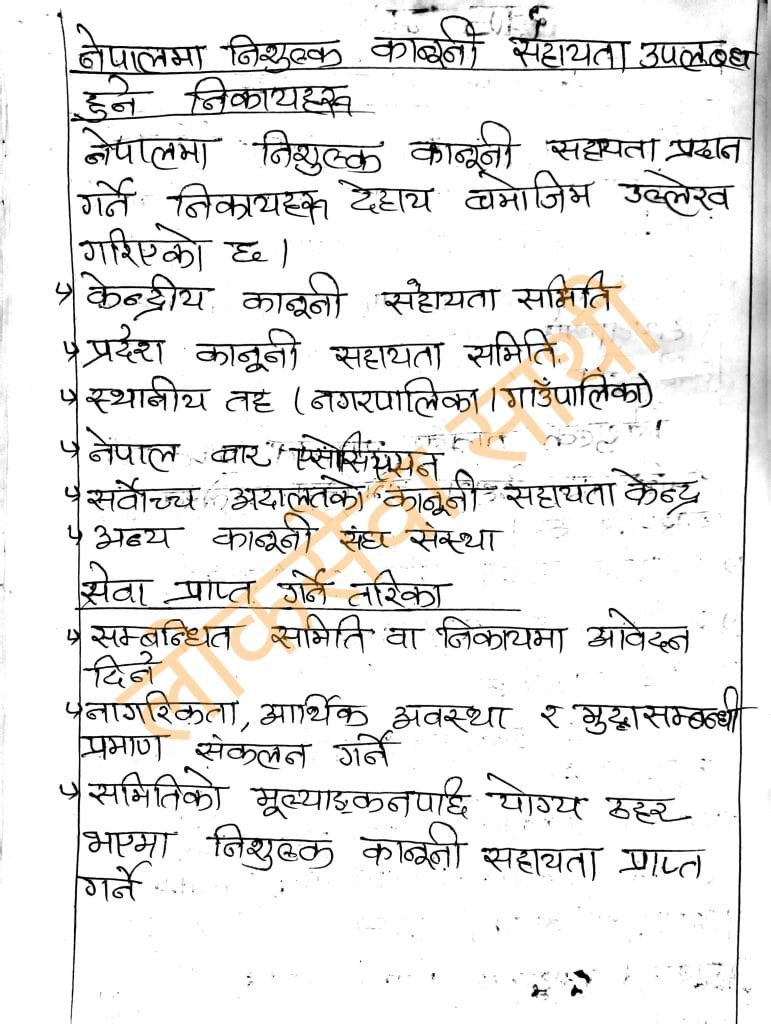 नेपालमा निशुल्क कानूनी सहायता उपलब्ध
हुने निकायहरू
नेपालमा निशुल्क कानूनी सहायता प्रदान
गर्ने निकायहरू देहाय बमोजिम उल्लेख
गरिएको छ।
↳ केन्द्रीय कानूनी सहायता समिति
↳ प्रदेश कानूनी सहायता समिति
↳ स्थानीय तह (नगरपालिका।गाउँपालिका)
↳ नेपाल बार एसोसियसन
↳ सर्वोच्च अदालतको कानूनी सहायता केन्द्र
↳ अन्य कानूनी संघ संस्था
सेवा प्राप्त गर्ने तरिका
↳ सम्बन्धित समिति वा निकायमा आवेदन
दिने
↳ नागरिकता, आर्थिक अवस्था र मुद्दासम्बन्धी
प्रमाण संकलन गर्ने
↳ समितिको मूल्याङ्कनपछि योग्य ठहर
भएमा निशुल्क कानूनी सहायता प्राप्त
गर्ने
लोकसेवा साथी